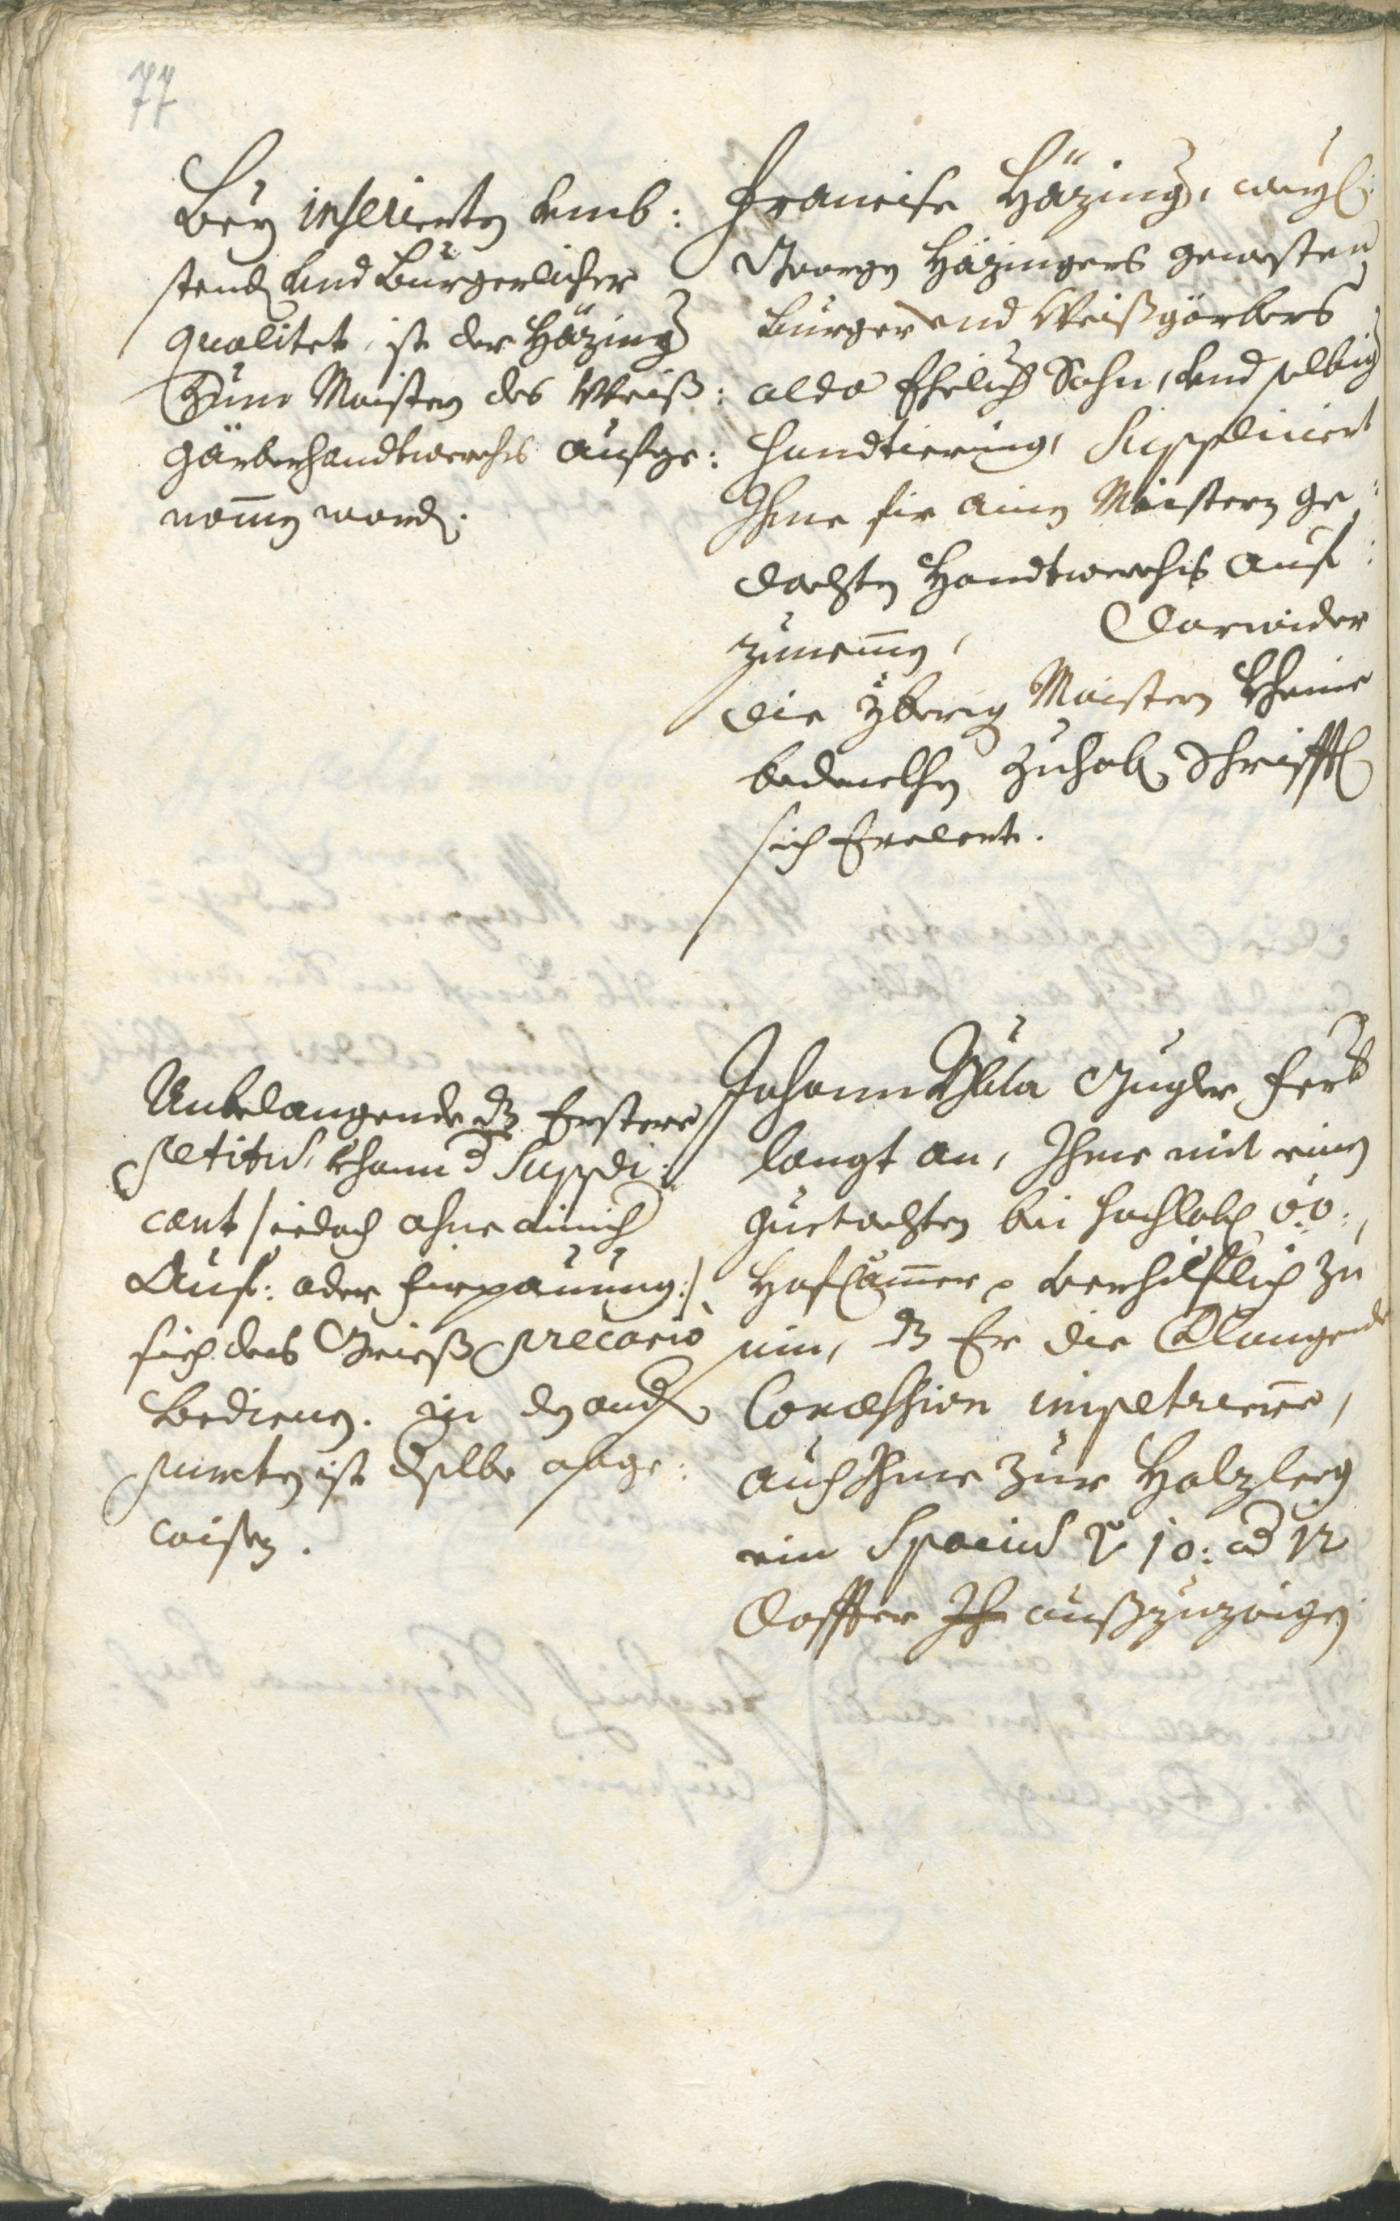 77
Bey inserierten Umb:
stendt und Bürgerlicher
qualitet, ist der Häzinger
zum Maister des Weiß:
gärberhandtwerchs aufge:
nomen wordn.
Francisc Häzinger, weyl:
Georgn Häzingers gewesten
Burger und Weißgärbers
alda Ehelich Sohn, und selbiger
handtierung, Suppliciert
Ihme für ainen Maistern ge:
dachten Handtwerchs auf:
zunemen, Darwider
die yberig Maistern kheine
bedenckhen zuhaben schrifftl
sich Erclert.
Anbelangende dz Erstere
petitum, khann d Suppli:
cant /: iedoch ohne ainich
Auf: oder fürpauung :/
sich des Grieß precario
bedienen. in dem andern
puncten ist dselbe abge:
wisen.
Johann Gugler Ferb
langt an, Ihme mit einem
guetachten bei hochlobl OÖ:
Hof Camer verhilflich zu
sein, dz Er die Clangende
Concession impetriere,
auch Ihme zur Holzleeg
ein Spacium 10: ad 12
Claffter außzuzaigen